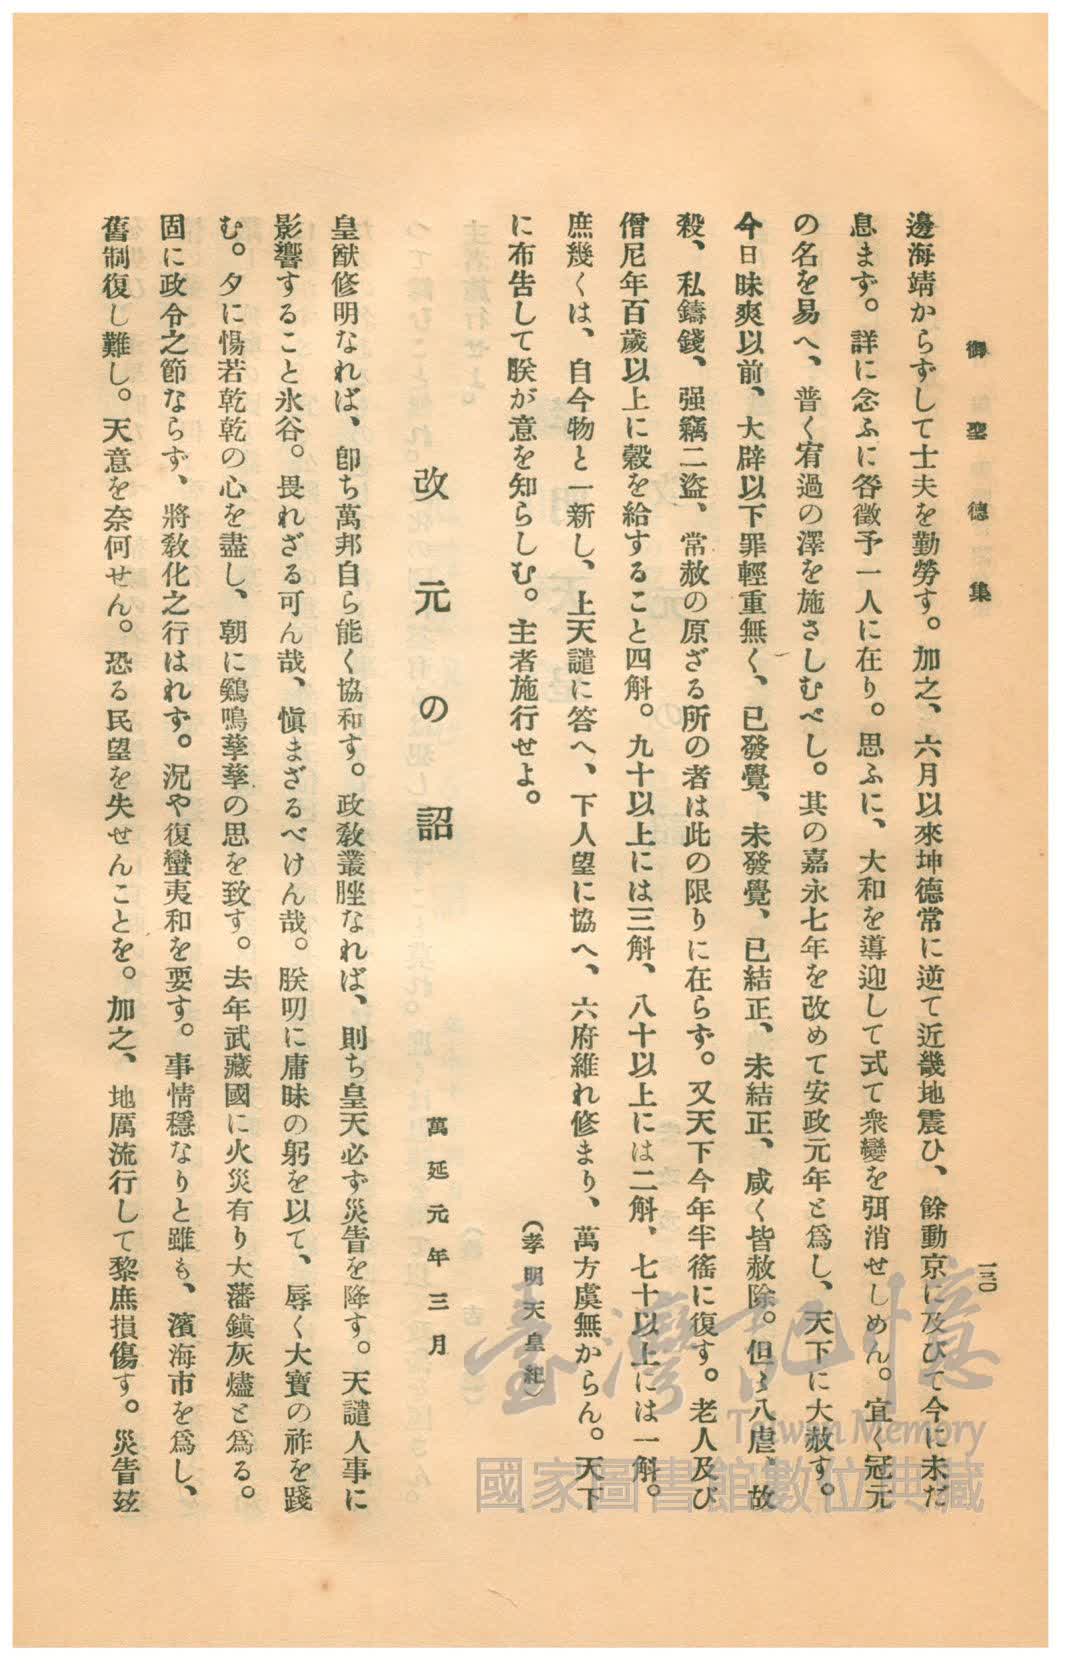 御聖德集
一三〇
邊海靖からずして士夫を勤勞す。加之、六月以來坤德常に逆て近畿地震ひ、餘動京に及びて今に未だ
息まず。詳に念ふに咎徵予一人に在り。思ふに、大和を導迎して式て衆變を弭消せしめん。宜く冠元
の名を易へ、普く宥過の澤を施さしむべし。其の嘉永七年を改めて安政元年と爲し、天下に大赦す。
今日昧爽以前、大辟以下罪輕重無く、已發覺、未發覺、已結正、未結正、咸く皆赦除。但し八虐、故
殺、私鑄錢、强竊二盜、常赦の原ざる所の者は此の限りに在らず。又天下今年半徭に復す。老人及び
僧尼年百歲以上に穀を給すること四斛。九十以上には三斛、八十以上には二斛、七十以上には一斛。
庶幾くは、自今物と一新し、上天譴に答へ、下人望に協へ、六府維れ修まり、萬方虞無からん。天下
に布告して朕が意を知らしむ。主者施行せよ。
（孝明天皇紀）
改元の詔
萬延元年三月
皇猷修明なれば、卽ち萬邦自ら能く協和す。政敎叢脞なれば、則ち皇天必ず災眚を降す。天譴人事に
影響すること氷谷。畏れざる可ん哉、愼まざるべけん哉。朕叨に庸昧の躬を以て、辱く大寶の祚を踐
む。夕に惕若乾乾の心を盡し、朝に鷄鳴孳孳の思を致す。去年武藏國に火災有り大藩鎭灰燼と爲る。
固に政令之節ならず、將敎化之行はれず。況や復蠻夷和を要す。事情穩なりと雖も、濱海市を爲し、
舊制復し難し。天意を奈何せん。恐る民望を失せんことを。加之、地厲流行して黎庶損傷す。災眚玆
臺灣記憶
Taiwan Memory
國家圖書館數位典藏